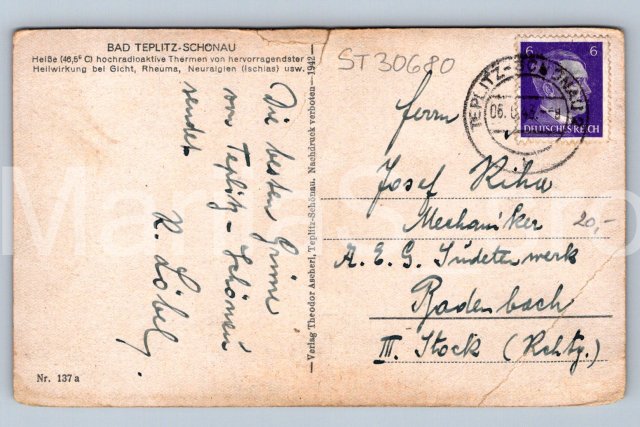 BAD TEPLITZ-SCHÖNAU
Heiße (46,5° C) hochradioaktive Thermen von hervorragendster
Heilwirkung bei Gicht, Rheuma, Neuralgien (Ischias) usw.
ST30680
6 6
DEUTSCHES REICH
TEPLITZ-SCHÖNAU
Die besten Grüsse
von Teplitz-Schönau
sendet
K. Löbel.
Verlag Theodor Ascherl, Teplitz-Schönau. Nachdruck verboten —1942—
Herrn
Josef Kiha
Mechaniker
20,-
A. E. G. Sudetenwerk
Bodenbach
III. Stock (Rchtg.)
Nr. 137a